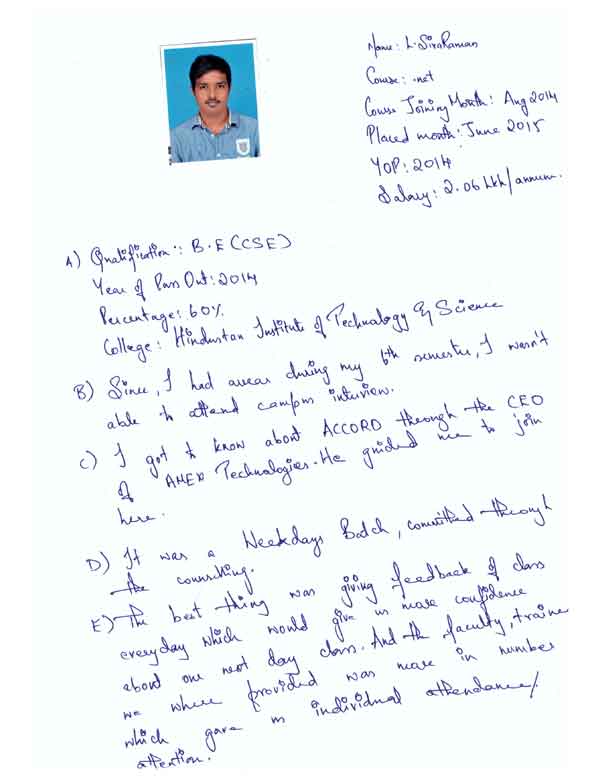 Name: L. SivaRaman
Course: .net
Course Joining Month: Aug 2014
Placed month: June 2015
YOP: 2014
Salary: 2.06 Lkh/annum.
A) Qualification:: B.E (CSE)
Year of Pass Out: 2014
Percentage: 60%
College: Hindustan Institute of Technology & Science
B) Since, I had arear during my 6th semester, I wasn't
able to attend campus interview.
C) I got to know about ACCORD through the CEO
of Technologies. He guided me to join
here.
D) It was a Weekdays Batch, committed through
the counciling.
E) The best thing was giving feedback of class
everyday which would give us more confidence
about our next day class. And the faculty, traine
we where provided was more in number
which gave us individual attendance/
attention.